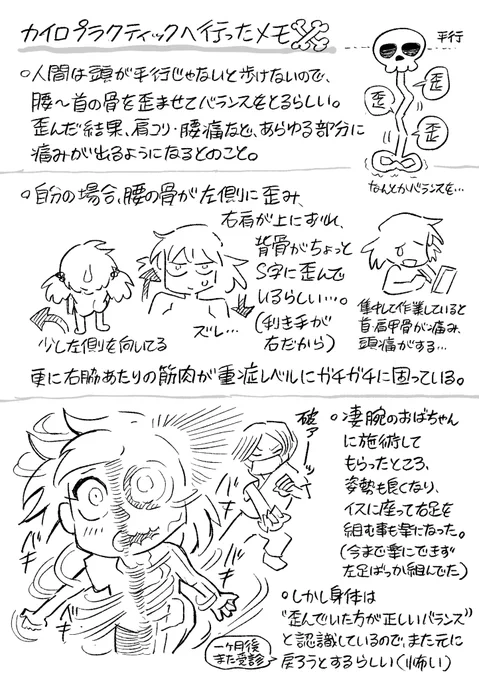 カイロプラクティックへ行ったメモ
平行
○人間は頭が平行じゃないと歩けないので、
腰〜首の骨を歪ませてバランスをとるらしい。
歪んだ結果、肩コリ・腰痛など、あらゆる部分に
痛みが出るようになるとのこと。
歪
歪
歪
なんとかバランスを…
○自分の場合、腰の骨が左側に歪み、
右肩が上にずれ、
背骨がちょっと
S字に歪んで
いるらしい…。
(利き手が
右だから)
少し左側を向いてる
ズレ…
集中して作業していると
首・肩甲骨が痛み、
頭痛がする…
更に右脇あたりの筋肉が重症レベルにガチガチに固っている。
破ァーッ
○凄腕のおばちゃん
に施術して
もらったところ、
姿勢も良くなり、
イスに座って右足を
組む事も楽になった。
(今まで楽にできず
左足ばっか組んでた)
○しかし身体は
"歪んでいた方が正しいバランス"
と認識しているので、また元に
戻ろうとするらしい(怖い)
一ヶ月後
また受診